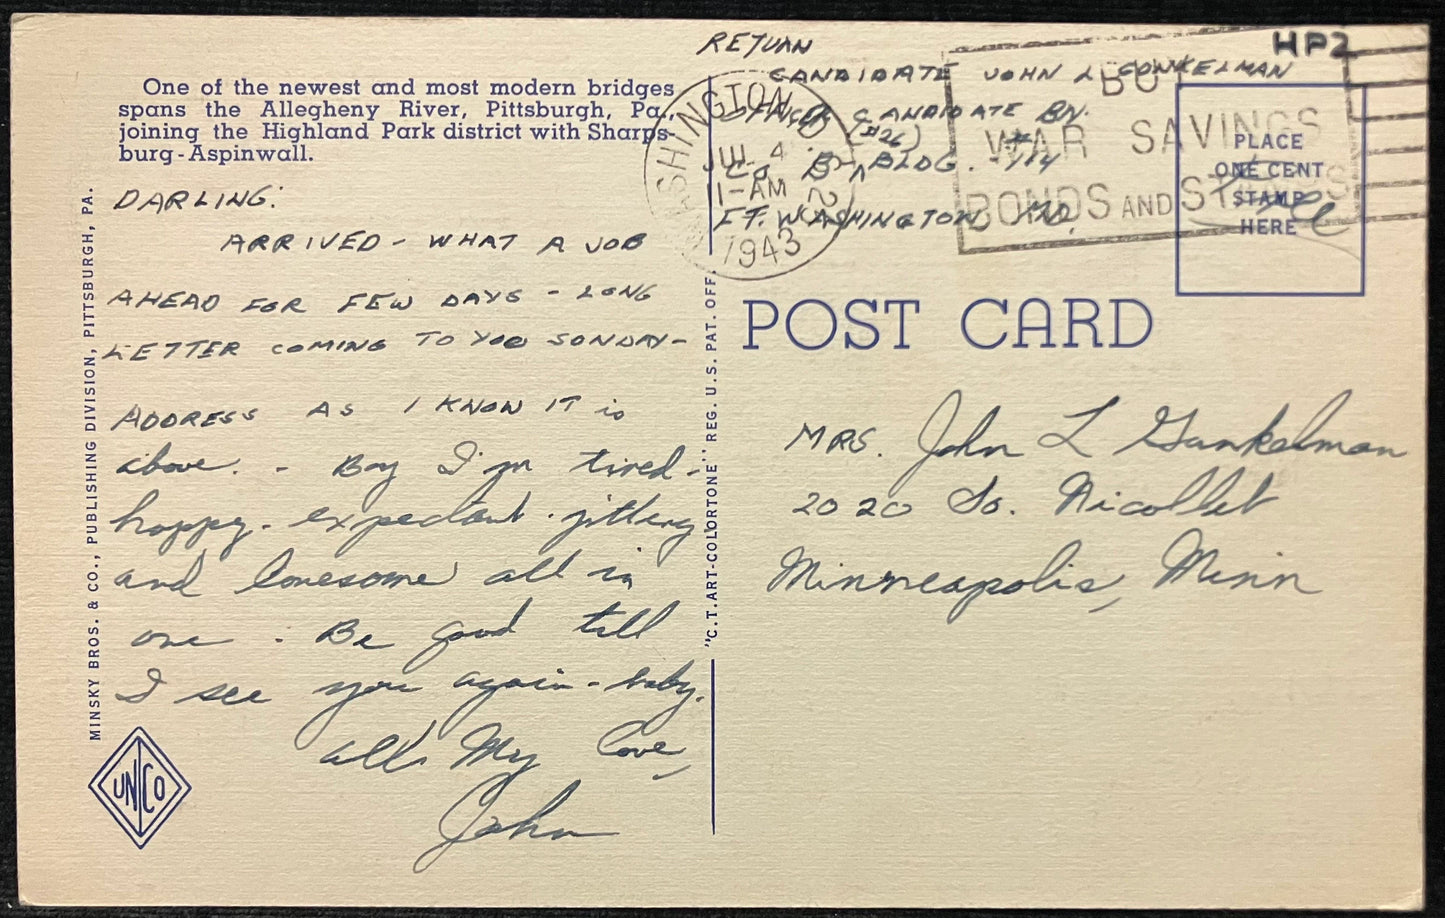 One of the newest and most modern bridges
spans the Allegheny River, Pittsburgh, Pa.,
joining the Highland Park district with Sharps-
burg-Aspinwall.
DARLING:
ARRIVED - WHAT A JOB
AHEAD FOR FEW DAYS - LONG
LETTER COMING TO YOU SUNDAY-
ADDRESS AS I KNOW IT is
above. - Boy I'm tired-
happy - expectant - jittery
and lonesome all in
one - Be good till
I see you again - baby.
all My love,
John
MINSKY BROS. & CO., PUBLISHING DIVISION, PITTSBURGH, PA.
UNICO
"C.T. ART-COLORTONE" REG. U.S. PAT. OFF.
RETURN
CANDIDATE JOHN L GUNKELMAN
OFFICER CANDIDATE BN.
(#26)
CO B BLDG.
FT. WASHINGTON MD.
WASHINGTON D.C.
JUL 4
1-AM
1943
BUY
WAR SAVINGS
BONDS AND STAMPS
HP2
PLACE
ONE CENT
STAMP
HERE
Free
POST CARD
MRS. John L Gunkelman
2020 So. Nicollet
Minneapolis, Minn